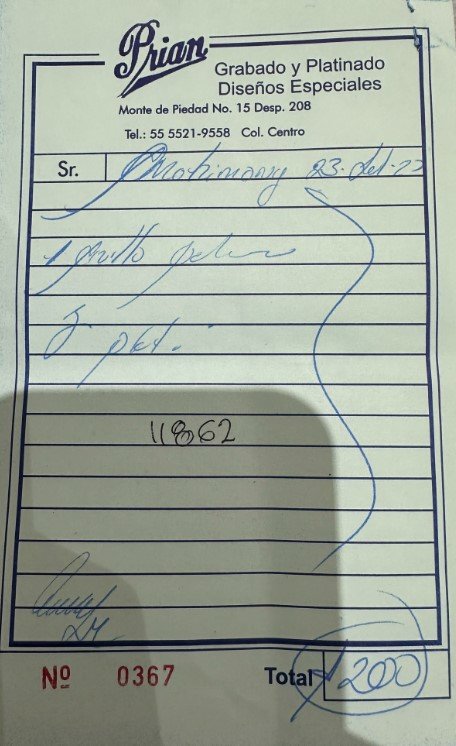 Prian
Grabado y Platinado
Diseños Especiales
Monte de Piedad No. 15 Desp. 208
Tel.: 55 5521-9558 Col. Centro
Sr. Matrimony 23
1 anillo
y plat.
11862
Nº 0367 Total $200